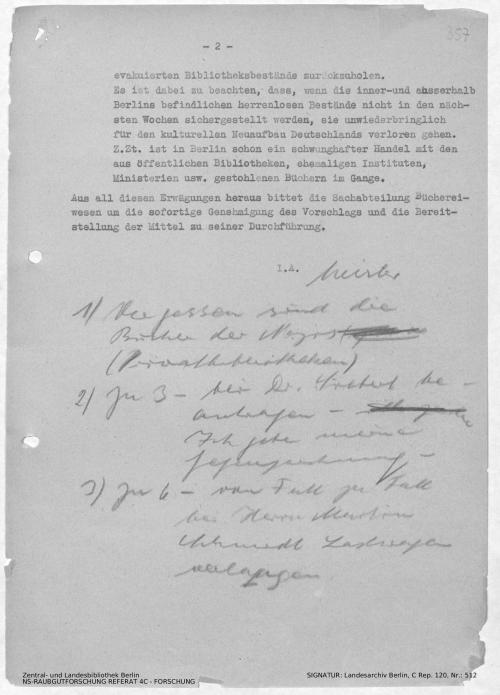 - 2 -
357
evakuierten Bibliotheksbestände zurückzuholen.
Es ist dabei zu beachten, dass, wenn die inner-und ausserhalb
Berlins befindlichen herrenlosen Bestände nicht in den näch-
sten Wochen sichergestellt werden, sie unwiederbringlich
für den kulturellen Neuaufbau Deutschlands verloren gehen.
Z.Zt. ist in Berlin schon ein schwunghafter Handel mit den
aus öffentlichen Bibliotheken, ehemaligen Instituten,
Ministerien usw. gestohlenen Büchern im Gange.
Aus all diesen Erwägungen heraus bittet die Sachabteilung Bücherei-
wesen um die sofortige Genehmigung des Vorschlags und die Bereit-
stellung der Mittel zu seiner Durchführung.
I.A.
1) Vergessen sind die
Bücher der
(Privatbibliotheken)
2) Zu 3 - bei Dr. be-
antragen -
Ich gebe meine
Gegenzeichnung -
3) Zu 6 - von Fall zu Fall
bei Herrn
Schmidt Lastwagen
verlangen
Zentral- und Landesbibliothek Berlin
NS-RAUBGUTFORSCHUNG REFERAT 4C - FORSCHUNG
SIGNATUR: Landesarchiv Berlin, C Rep. 120, Nr.: 512